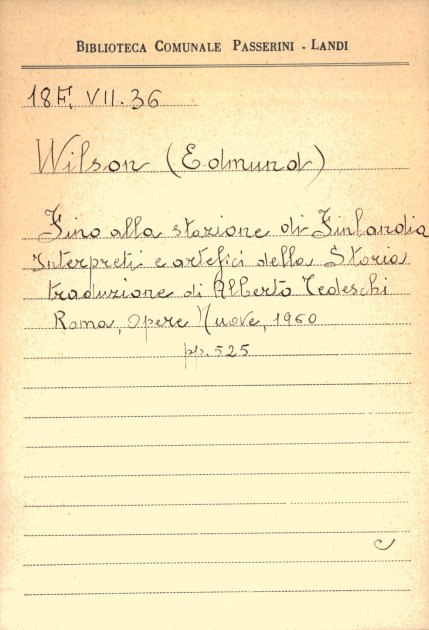 BIBLIOTECA COMUNALE PASSERINI - LANDI
18F. VII. 36
Wilson (Edmund)
Fino alla stazione di Finlandia
Interpreti e artefici della Storia
traduzione di Alberto Tedeschi
Roma, Opere Nuove, 1960
pp. 525